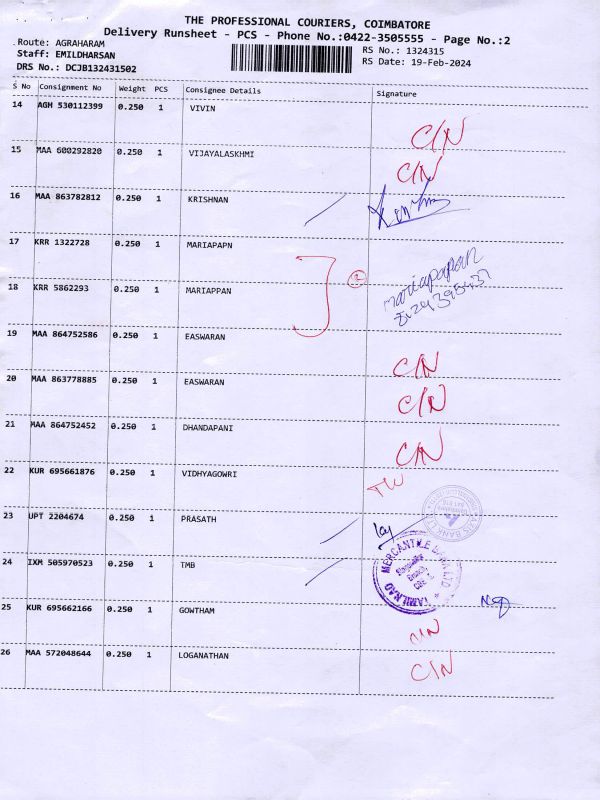 THE PROFESSIONAL COURIERS, COIMBATORE
Delivery Runsheet - PCS - Phone No.:0422-3505555 - Page No.:2
Route: AGRAHARAM
RS No.: 1324315
Staff: EMILDHARSAN
RS Date: 19-Feb-2024
DRS No.: DCJB132431502
S No Consignment No Weight PCS Consignee Details Signature
14 AGH 530112399 0.250 1 VIVIN C/N
15 MAA 600292820 0.250 1 VIJAYALASKHMI C/N
16 MAA 863782812 0.250 1 KRISHNAN
17 KRR 1322728 0.250 1 MARIAPAPN
mariapapan
18 KRR 5862293 0.250 1 MARIAPPAN
19 MAA 864752586 0.250 1 EASWARAN C/N
20 MAA 863778885 0.250 1 EASWARAN C/N
21 MAA 864752452 0.250 1 DHANDAPANI C/N
22 KUR 695661876 0.250 1 VIDHYAGOWRI
23 UPT 2204674 0.250 1 PRASATH
AXIS BANK LTD
24 IXM 505970523 0.250 1 TMB
TAMILNAD MERCANTILE BANK LTD
25 KUR 695662166 0.250 1 GOWTHAM C/N
26 MAA 572048644 0.250 1 LOGANATHAN C/N